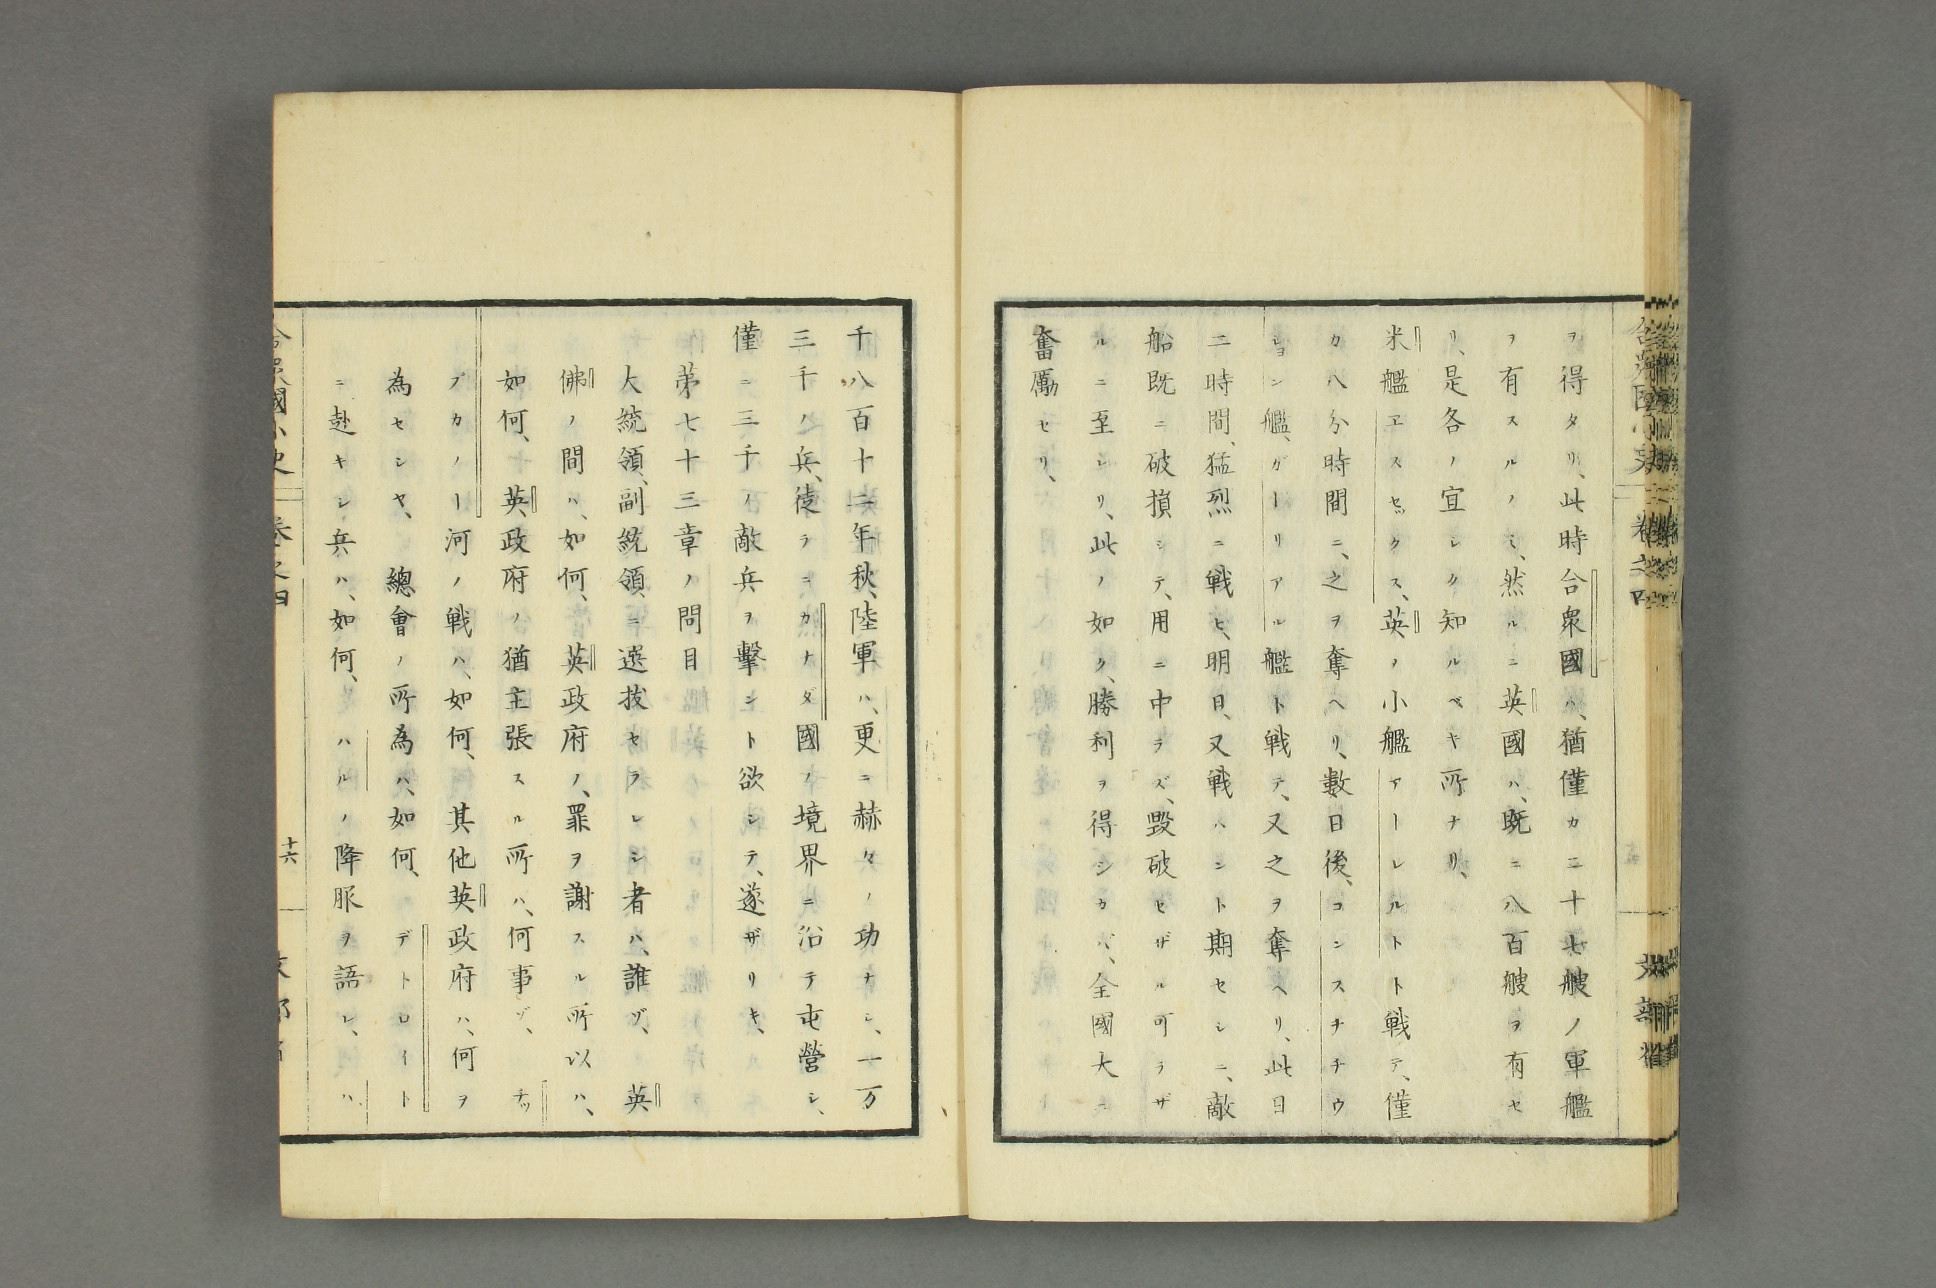 ヲ得タリ、此時合衆國ハ、猶僅カニ十七艘ノ軍艦
ヲ有スルノミ、然ルニ英國ハ、既ニ八百艘ヲ有セ
リ、是各ノ宜シク知ルベキ所ナリ、
米艦ヱスセックス、英ノ小艦アーレルトト戦テ、僅
カ八分時間ニ、之ヲ奪ヘリ、數日後、コンスチチウ
ション艦、ガーリアル艦ト戦テ、又之ヲ奪ヘリ、此日
二時間、猛烈ニ戦ヒ、明日、又戦ハント期セシニ、敵
船既ニ破損シテ、用ニ中ラズ、毀破セザル可ラザ
ルニ至レリ、此ノ如ク、勝利ヲ得シカバ、全國大ニ
奮勵セリ、
千八百十二年秋、陸軍ハ、更ニ赫々ノ功ナシ、一万
三千ノ兵、徒ラニカナダ國ノ境界ニ沿テ屯營シ、
僅ニ三千ノ敵兵ヲ擊ント欲シテ、遂ザリキ、
苐七十三章ノ問目
大統領、副統領、ニ選拔セラレシ者ハ、誰ゾ、英
佛ノ間ハ、如何、英政府ノ、罪ヲ謝スル所以ハ、
如何、英政府ノ猶主張スル所ハ、何事ゾ、チッ
プカノー河ノ戦ハ、如何、其他英政府ハ、何ヲ
為セシヤ、總會ノ所為ハ、如何、デトロイト
ニ赴キシ兵ハ、如何、ハルノ降服ヲ語レ、ハ
合衆國小史
卷之四
十六
文部省